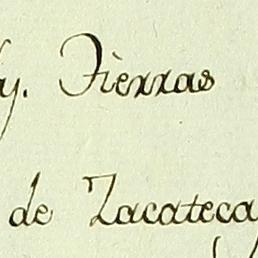 y. Tierras
de Zacateca